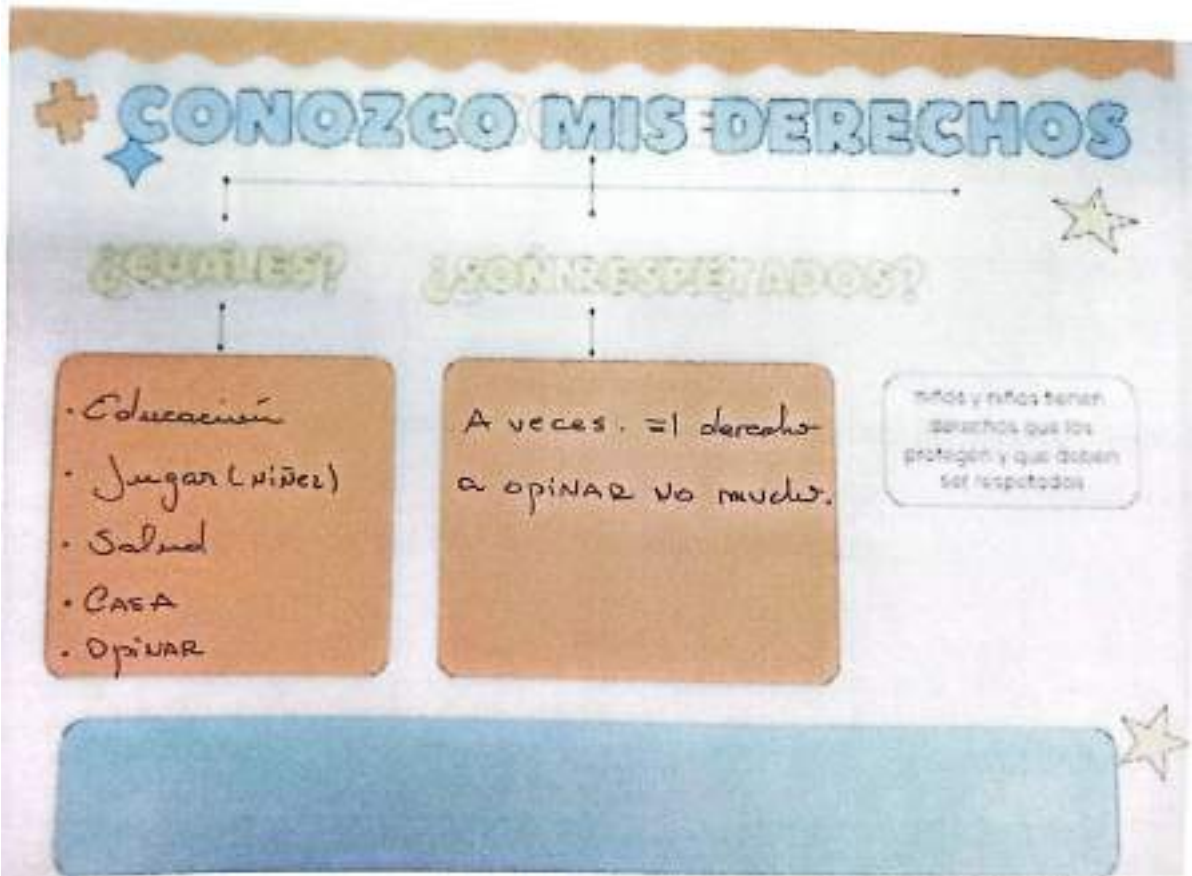 CONOZCO MIS DERECHOS
¿CUÁLES?
¿SON RESPETADOS?
· Educación
· Jugar (niñez)
· Salud
· CASA
· OpiNAR
A veces. El derecho
a opiNAR no mucho.
niños y niñas tienen
derechos que los
protegen y que deben
ser respetados